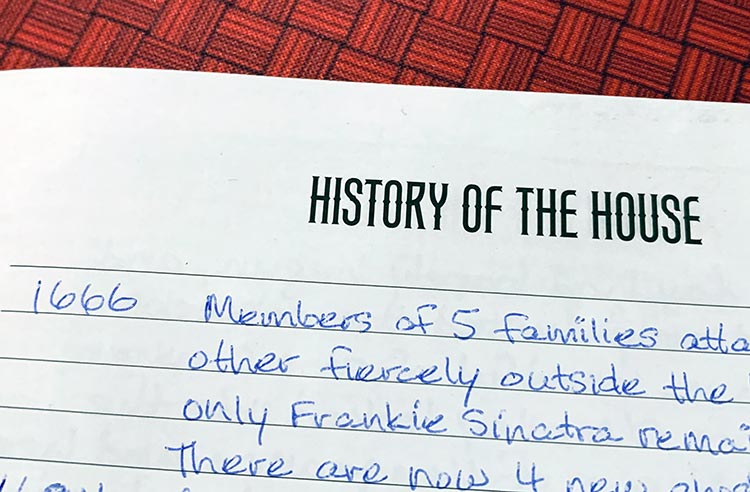 HISTORY OF THE HOUSE
1666 Members of 5 families atta
other fiercely outside the
only Frankie Sinatra remai
There are now 4 new